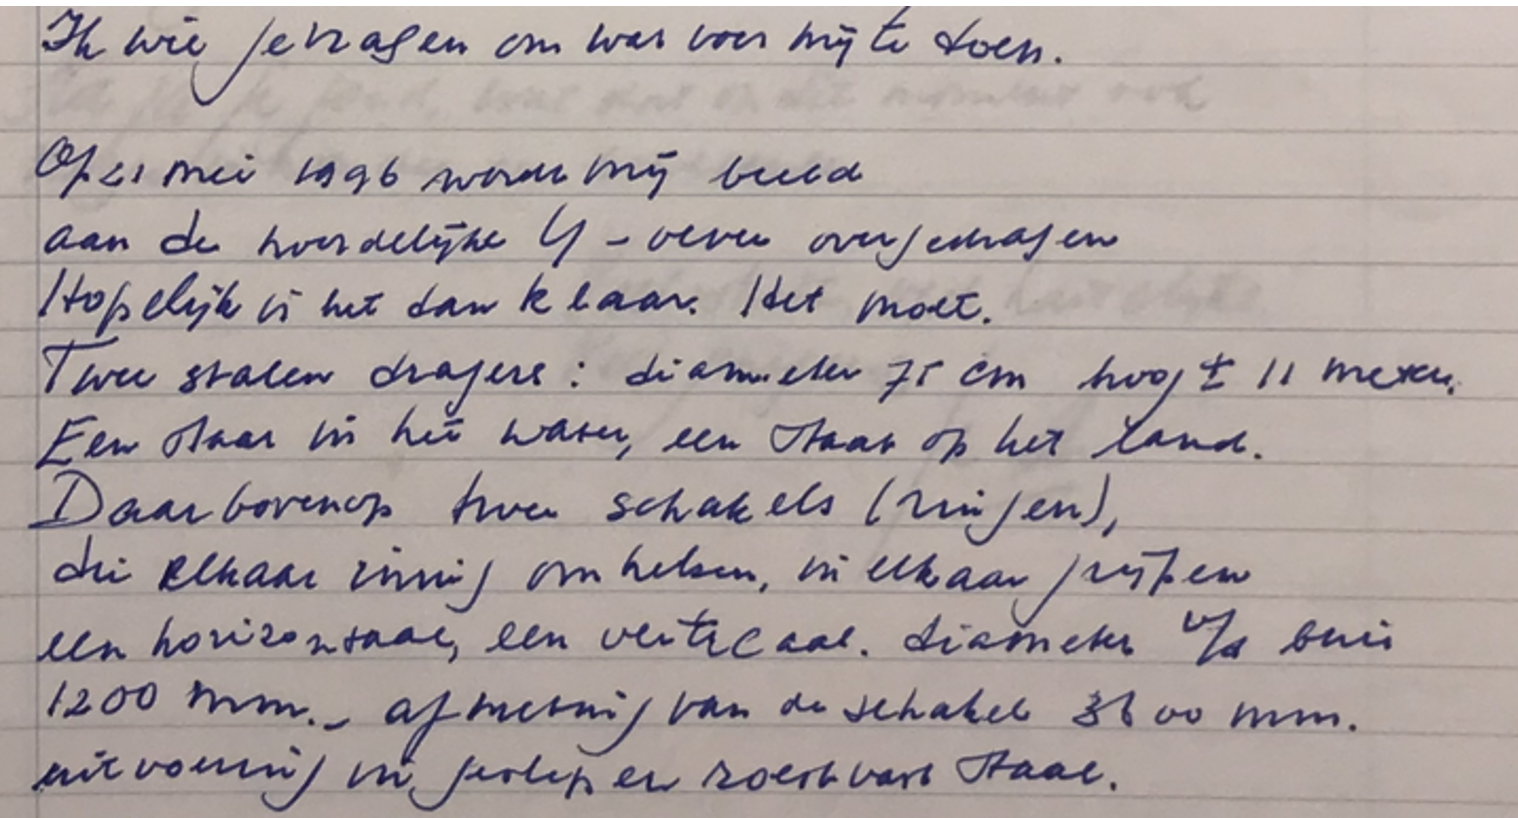 Ik wil je vragen om wat voor mij te doen.
Op 21 mei 1996 wordt mijn beeld
aan de noordelijke IJ-oever overgedragen
Hopelijk is het dan klaar. Het moet.
Twee stalen dragers: diameter 75 cm hoog ± 11 meter.
Een staat in het water, een staat op het land.
Daarbovenop twee schakels (ringen),
die elkaar innig omhelsen, in elkaar grijpen
een horizontaal, een verticaal. diameter v/d buis
1200 mm. - afmeting van de schakel 3600 mm.
uitvoering in geslepen roestvast staal.